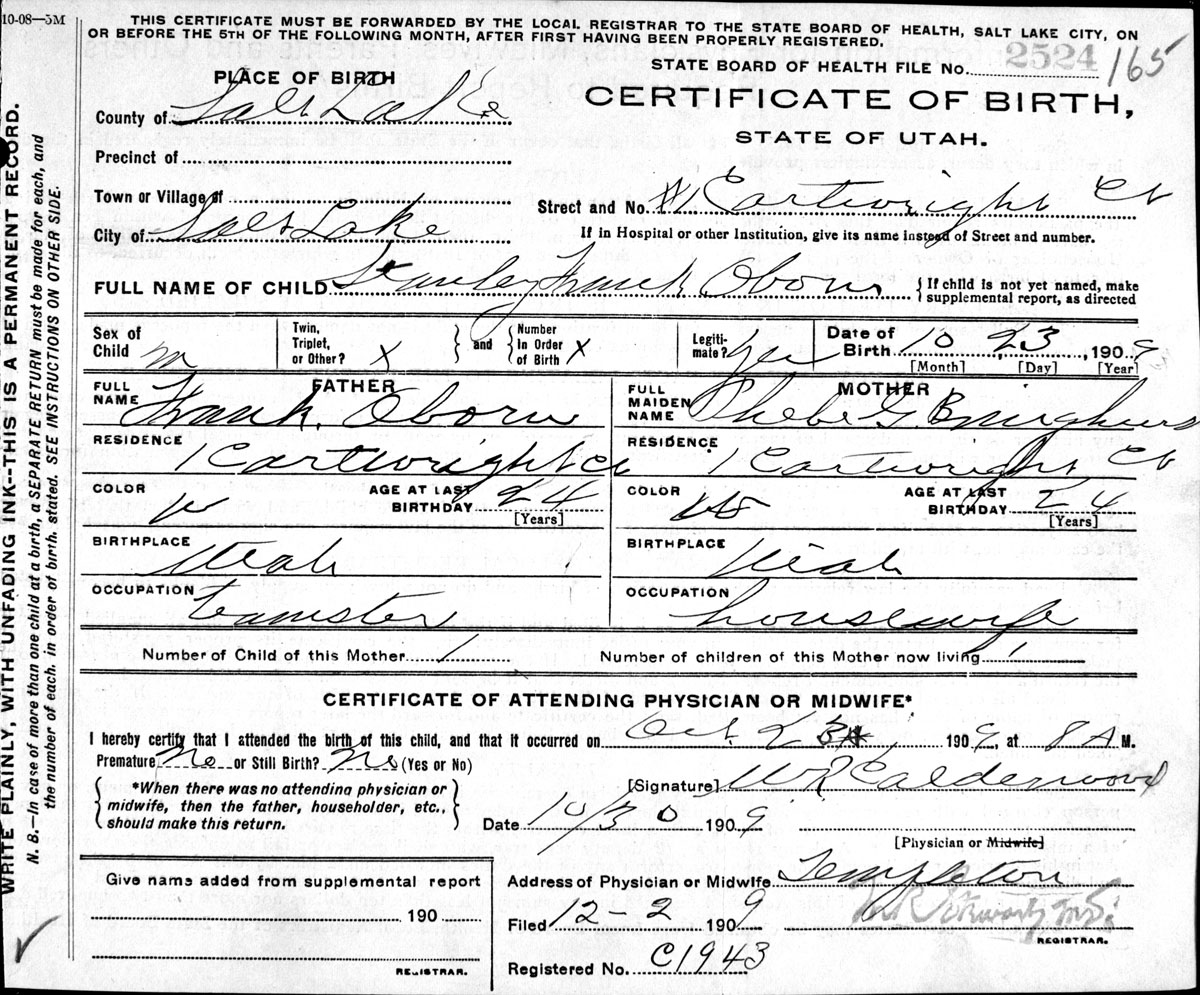 10-08—5M
THIS CERTIFICATE MUST BE FORWARDED BY THE LOCAL REGISTRAR TO THE STATE BOARD OF HEALTH, SALT LAKE CITY, ON
OR BEFORE THE 5TH OF THE FOLLOWING MONTH, AFTER FIRST HAVING BEEN PROPERLY REGISTERED.
STATE BOARD OF HEALTH FILE No. 2524 165
PLACE OF BIRTH
CERTIFICATE OF BIRTH,
STATE OF UTAH.
County of Salt Lake
Precinct of
Town or Village of
City of Salt Lake
Street and No. 1 Cartwright Ct
If in Hospital or other Institution, give its name instead of Street and number.
FULL NAME OF CHILD Stanley Frank Oborn
{ If child is not yet named, make
supplemental report, as directed
Sex of Child m
Twin, Triplet, or Other? X } and { Number In Order of Birth X
Legitimate? Yes
Date of Birth 10 23, 1909
[Month] [Day] [Year]
FATHER
FULL NAME Frank Oborn
RESIDENCE 1 Cartwright Ct
COLOR W AGE AT LAST BIRTHDAY 24
[Years]
BIRTHPLACE Utah
OCCUPATION teamster
MOTHER
FULL MAIDEN NAME Phebe G.
RESIDENCE 1 Cartwright Ct
COLOR W AGE AT LAST BIRTHDAY 24
[Years]
BIRTHPLACE Utah
OCCUPATION housewife
Number of Child of this Mother 1
Number of children of this Mother now living 1
CERTIFICATE OF ATTENDING PHYSICIAN OR MIDWIFE*
I hereby certify that I attended the birth of this child, and that it occurred on Oct. 23, 1909, at 8 A M.
Premature No or Still Birth? No (Yes or No)
{ *When there was no attending physician or
midwife, then the father, householder, etc.,
should make this return. }
[Signature] W R Calderwood
Date 10/30 1909
[Physician or Midwife]
Give name added from supplemental report
190
REGISTRAR.
Address of Physician or Midwife Templeton
Filed 12-2 1909
REGISTRAR.
Registered No. C1943
WRITE PLAINLY, WITH UNFADING INK--THIS IS A PERMANENT RECORD.
N. B.—In case of more than one child at a birth, a SEPARATE RETURN must be made for each, and
the number of each, in order of birth, stated. SEE INSTRUCTIONS ON OTHER SIDE.